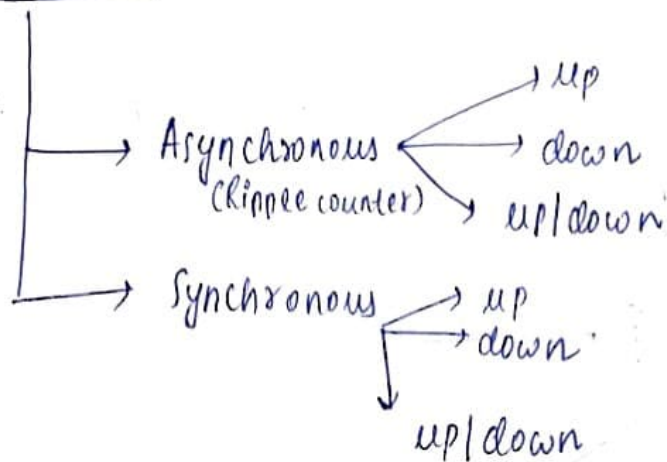 up
Asynchronous
down
(Ripple counter)
up/down
Synchronous
up
down
up/down